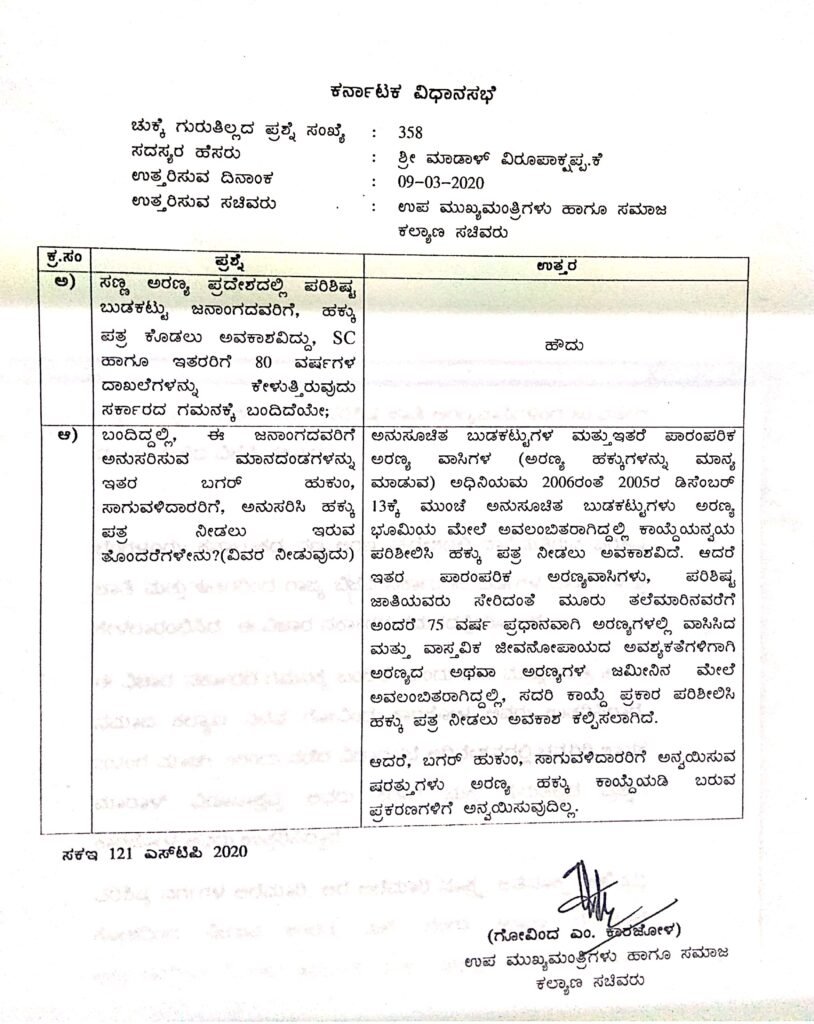 ಕರ್ನಾಟಕ ವಿಧಾನಸಭೆ
ಚುಕ್ಕೆ ಗುರುತಿಲ್ಲದ ಪ್ರಶ್ನೆ ಸಂಖ್ಯೆ : 358
ಸದಸ್ಯರ ಹೆಸರು : ಶ್ರೀ ಮಾಡಾಳ್ ವಿರೂಪಾಕ್ಷಪ್ಪ.ಕೆ
ಉತ್ತರಿಸುವ ದಿನಾಂಕ : 09-03-2020
ಉತ್ತರಿಸುವ ಸಚಿವರು : ಉಪ ಮುಖ್ಯಮಂತ್ರಿಗಳು ಹಾಗೂ ಸಮಾಜ
ಕಲ್ಯಾಣ ಸಚಿವರು
ಕ್ರ.ಸಂ ಪ್ರಶ್ನೆ ಉತ್ತರ
ಅ) ಸಣ್ಣ ಅರಣ್ಯ ಪ್ರದೇಶದಲ್ಲಿ ಪರಿಶಿಷ್ಟ
ಬುಡಕಟ್ಟು ಜನಾಂಗದವರಿಗೆ, ಹಕ್ಕು
ಪತ್ರ ಕೊಡಲು ಅವಕಾಶವಿದ್ದು, SC
ಹಾಗೂ ಇತರರಿಗೆ 80 ವರ್ಷಗಳ
ದಾಖಲೆಗಳನ್ನು ಕೇಳುತ್ತಿರುವುದು
ಸರ್ಕಾರದ ಗಮನಕ್ಕೆ ಬಂದಿದೆಯೇ;
ಹೌದು
ಆ) ಬಂದಿದ್ದಲ್ಲಿ, ಈ ಜನಾಂಗದವರಿಗೆ
ಅನುಸರಿಸುವ ಮಾನದಂಡಗಳನ್ನು
ಇತರ ಬಗರ್ ಹುಕುಂ,
ಸಾಗುವಳಿದಾರರಿಗೆ, ಅನುಸರಿಸಿ ಹಕ್ಕು
ಪತ್ರ ನೀಡಲು ಇರುವ
ತೊಂದರೆಗಳೇನು?(ವಿವರ ನೀಡುವುದು)
ಅನುಸೂಚಿತ ಬುಡಕಟ್ಟುಗಳ ಮತ್ತುಇತರೆ ಪಾರಂಪರಿಕ
ಅರಣ್ಯ ವಾಸಿಗಳ (ಅರಣ್ಯ ಹಕ್ಕುಗಳನ್ನು ಮಾನ್ಯ
ಮಾಡುವ) ಅಧಿನಿಯಮ 2006ರಂತೆ 2005ರ ಡಿಸೆಂಬರ್
13ಕ್ಕೆ ಮುಂಚೆ ಅನುಸೂಚಿತ ಬುಡಕಟ್ಟುಗಳು ಅರಣ್ಯ
ಭೂಮಿಯ ಮೇಲೆ ಅವಲಂಬಿತರಾಗಿದ್ದಲ್ಲಿ ಕಾಯ್ದೆಯನ್ವಯ
ಪರಿಶೀಲಿಸಿ ಹಕ್ಕು ಪತ್ರ ನೀಡಲು ಅವಕಾಶವಿದೆ. ಆದರೆ
ಇತರ ಪಾರಂಪರಿಕ ಅರಣ್ಯವಾಸಿಗಳು, ಪರಿಶಿಷ್ಟ
ಜಾತಿಯವರು ಸೇರಿದಂತೆ ಮೂರು ತಲೆಮಾರಿನವರೆಗೆ
ಅಂದರೆ 75 ವರ್ಷ ಪ್ರಧಾನವಾಗಿ ಅರಣ್ಯಗಳಲ್ಲಿ ವಾಸಿಸಿದ
ಮತ್ತು ವಾಸ್ತವಿಕ ಜೀವನೋಪಾಯದ ಅವಶ್ಯಕತೆಗಳಿಗಾಗಿ
ಅರಣ್ಯದ ಅಥವಾ ಅರಣ್ಯಗಳ ಜಮೀನಿನ ಮೇಲೆ
ಅವಲಂಬಿತರಾಗಿದ್ದಲ್ಲಿ, ಸದರಿ ಕಾಯ್ದೆ ಪ್ರಕಾರ ಪರಿಶೀಲಿಸಿ
ಹಕ್ಕು ಪತ್ರ ನೀಡಲು ಅವಕಾಶ ಕಲ್ಪಿಸಲಾಗಿದೆ.
ಆದರೆ, ಬಗರ್ ಹುಕುಂ, ಸಾಗುವಳಿದಾರರಿಗೆ ಅನ್ವಯಿಸುವ
ಷರತ್ತುಗಳು ಅರಣ್ಯ ಹಕ್ಕು ಕಾಯ್ದೆಯಡಿ ಬರುವ
ಪ್ರಕರಣಗಳಿಗೆ ಅನ್ವಯಿಸುವುದಿಲ್ಲ.
ಸಕಇ 121 ಎಸ್‌ಟಿಪಿ 2020
(ಗೋವಿಂದ ಎಂ. ಕಾರಜೋಳ)
ಉಪ ಮುಖ್ಯಮಂತ್ರಿಗಳು ಹಾಗೂ ಸಮಾಜ
ಕಲ್ಯಾಣ ಸಚಿವರು